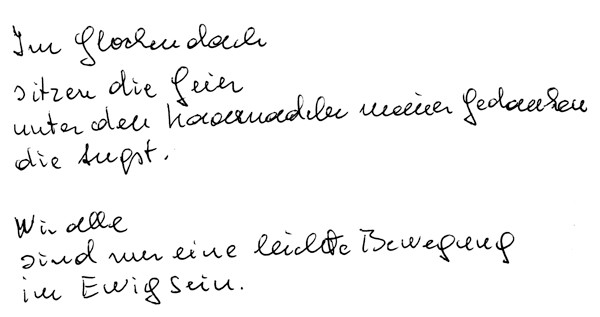 Im Glockendach
sitzen die Geier
unter den Haarnadeln meiner Gedanken
die Angst.
Wir alle
sind nur eine leichte Bewegung
im Ewigsein.